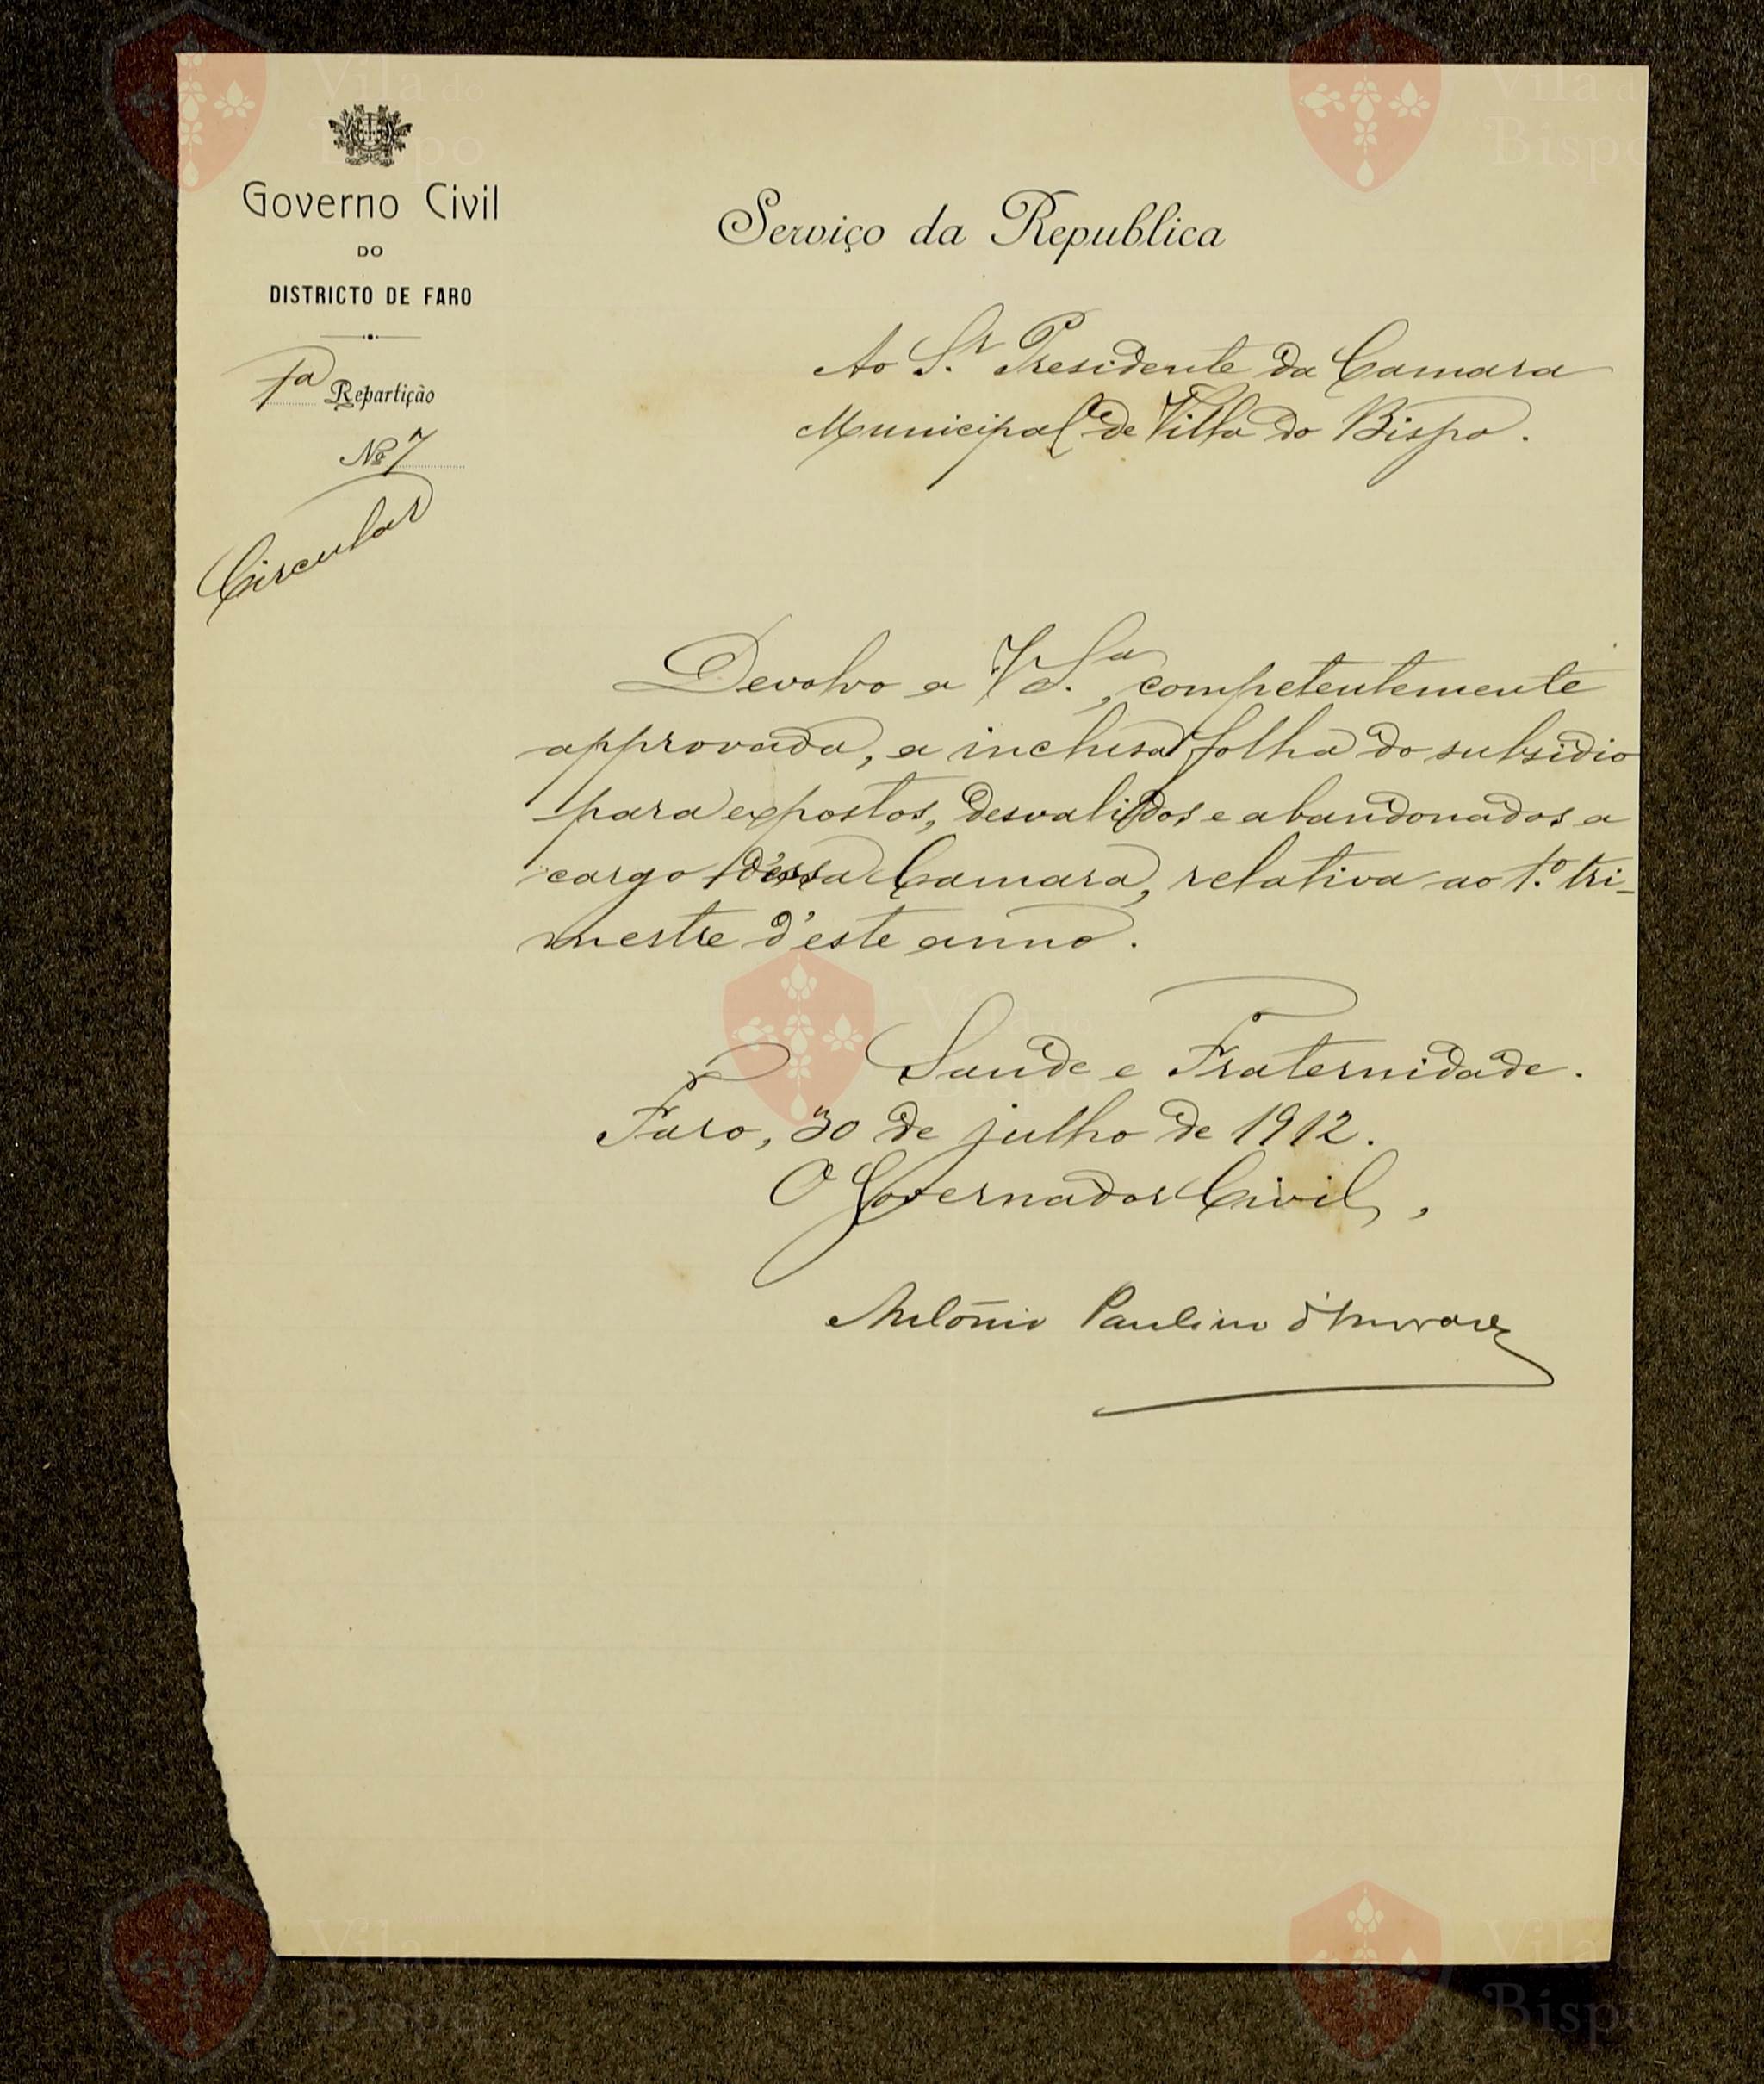 Governo Civil
DO
DISTRICTO DE FARO
1ª Repartição
Nº 7
Circular
Serviço da Republica
Ao Sr. Presidente da Camara
Municipal de Villa do Bispo.
Devolvo a V. S.ª, competentemente
approvada, a inclusa folha do subsidio
para expostos, desvalidos e abandonados a
cargo d'essa Camara, relativa ao 1.º tri-
mestre d'este anno.
Saude e Fraternidade.
Faro, 30 de julho de 1912.
O Governador Civil,
António Paulino
Vila do
Bispo
Vila do
Bispo
Vila do
Bispo
Vila do
Bispo
Vila do
Bispo